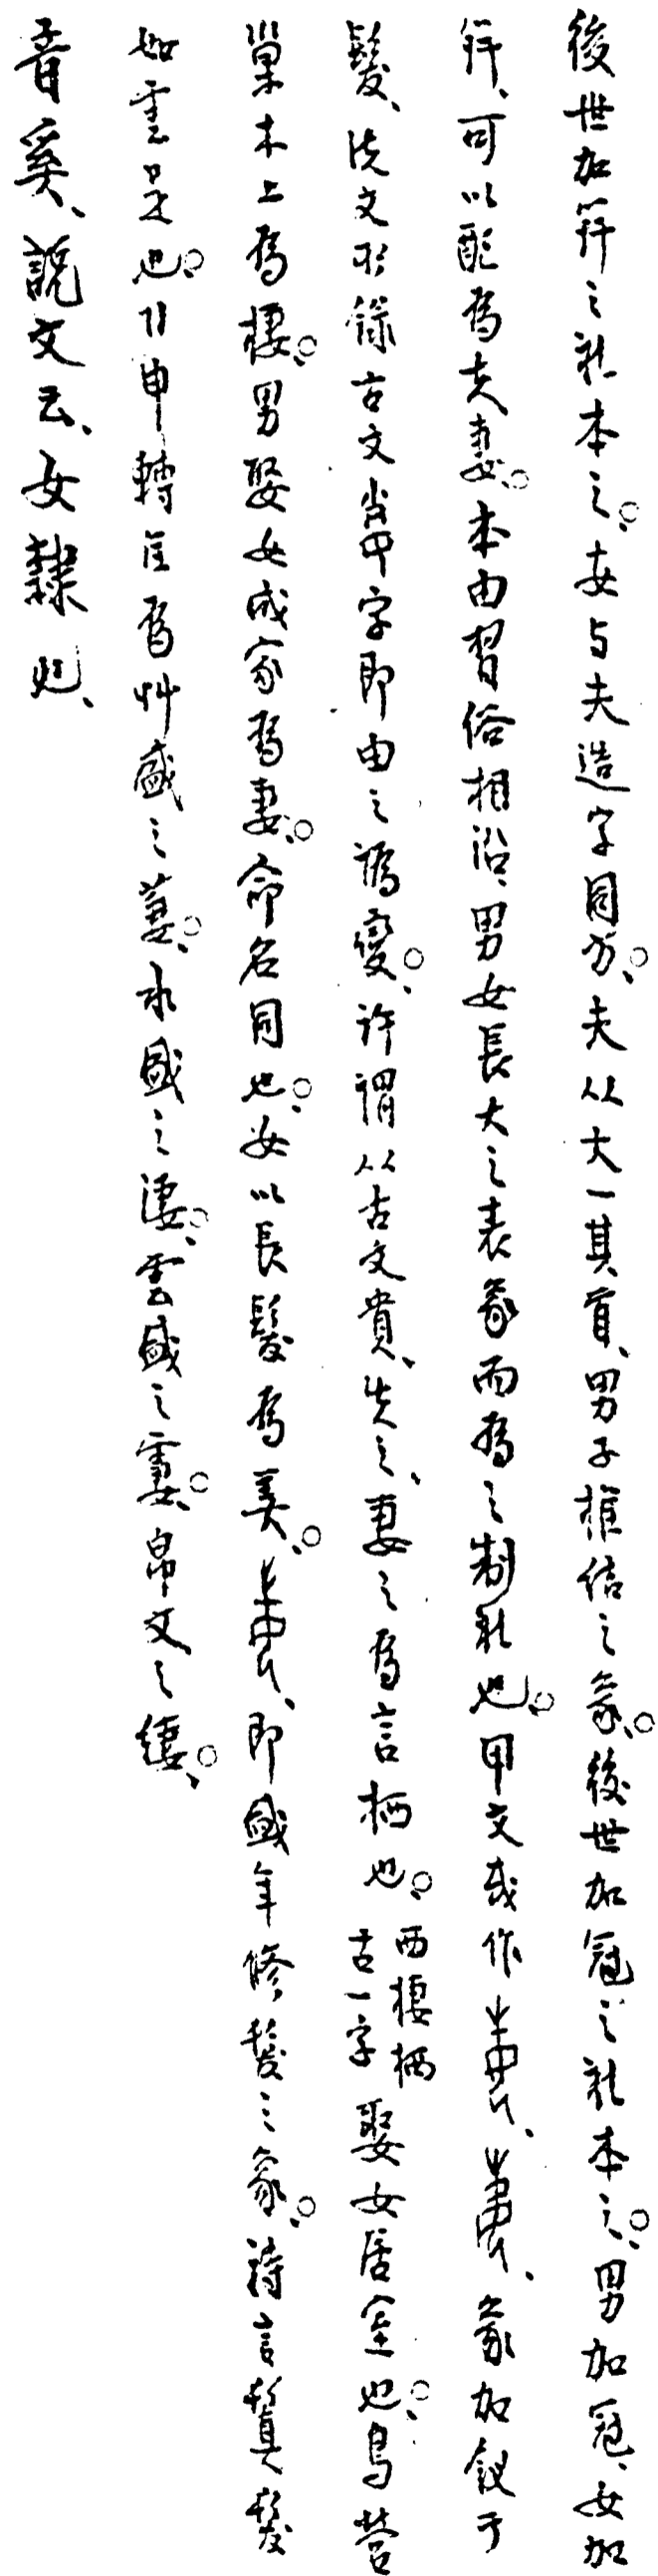 後世加笄之礼本之。妻与夫造字同方。夫从大一其首、男子摧结之象。後世加冠之礼本之。男加冠、女加
笄、可以配为夫妻。本由習俗相沿、男女長大之表象而為之制礼也。甲文或作、象加釵于
髮、說文所錄古文字即由之譌變。許谓从古文貴、失之。妻之为言栖也。西棲栖古一字娶女居室也。鳥營
巢木上为棲。男娶女成家为妻。命名同也。女以長髮为美。即盛年修髮之象。詩言鬒髮
如雲是也。引申轉注为艸盛之萋。水盛之淒。雲盛之霋。帛文之緀。
音奚、說文云、女隸也、